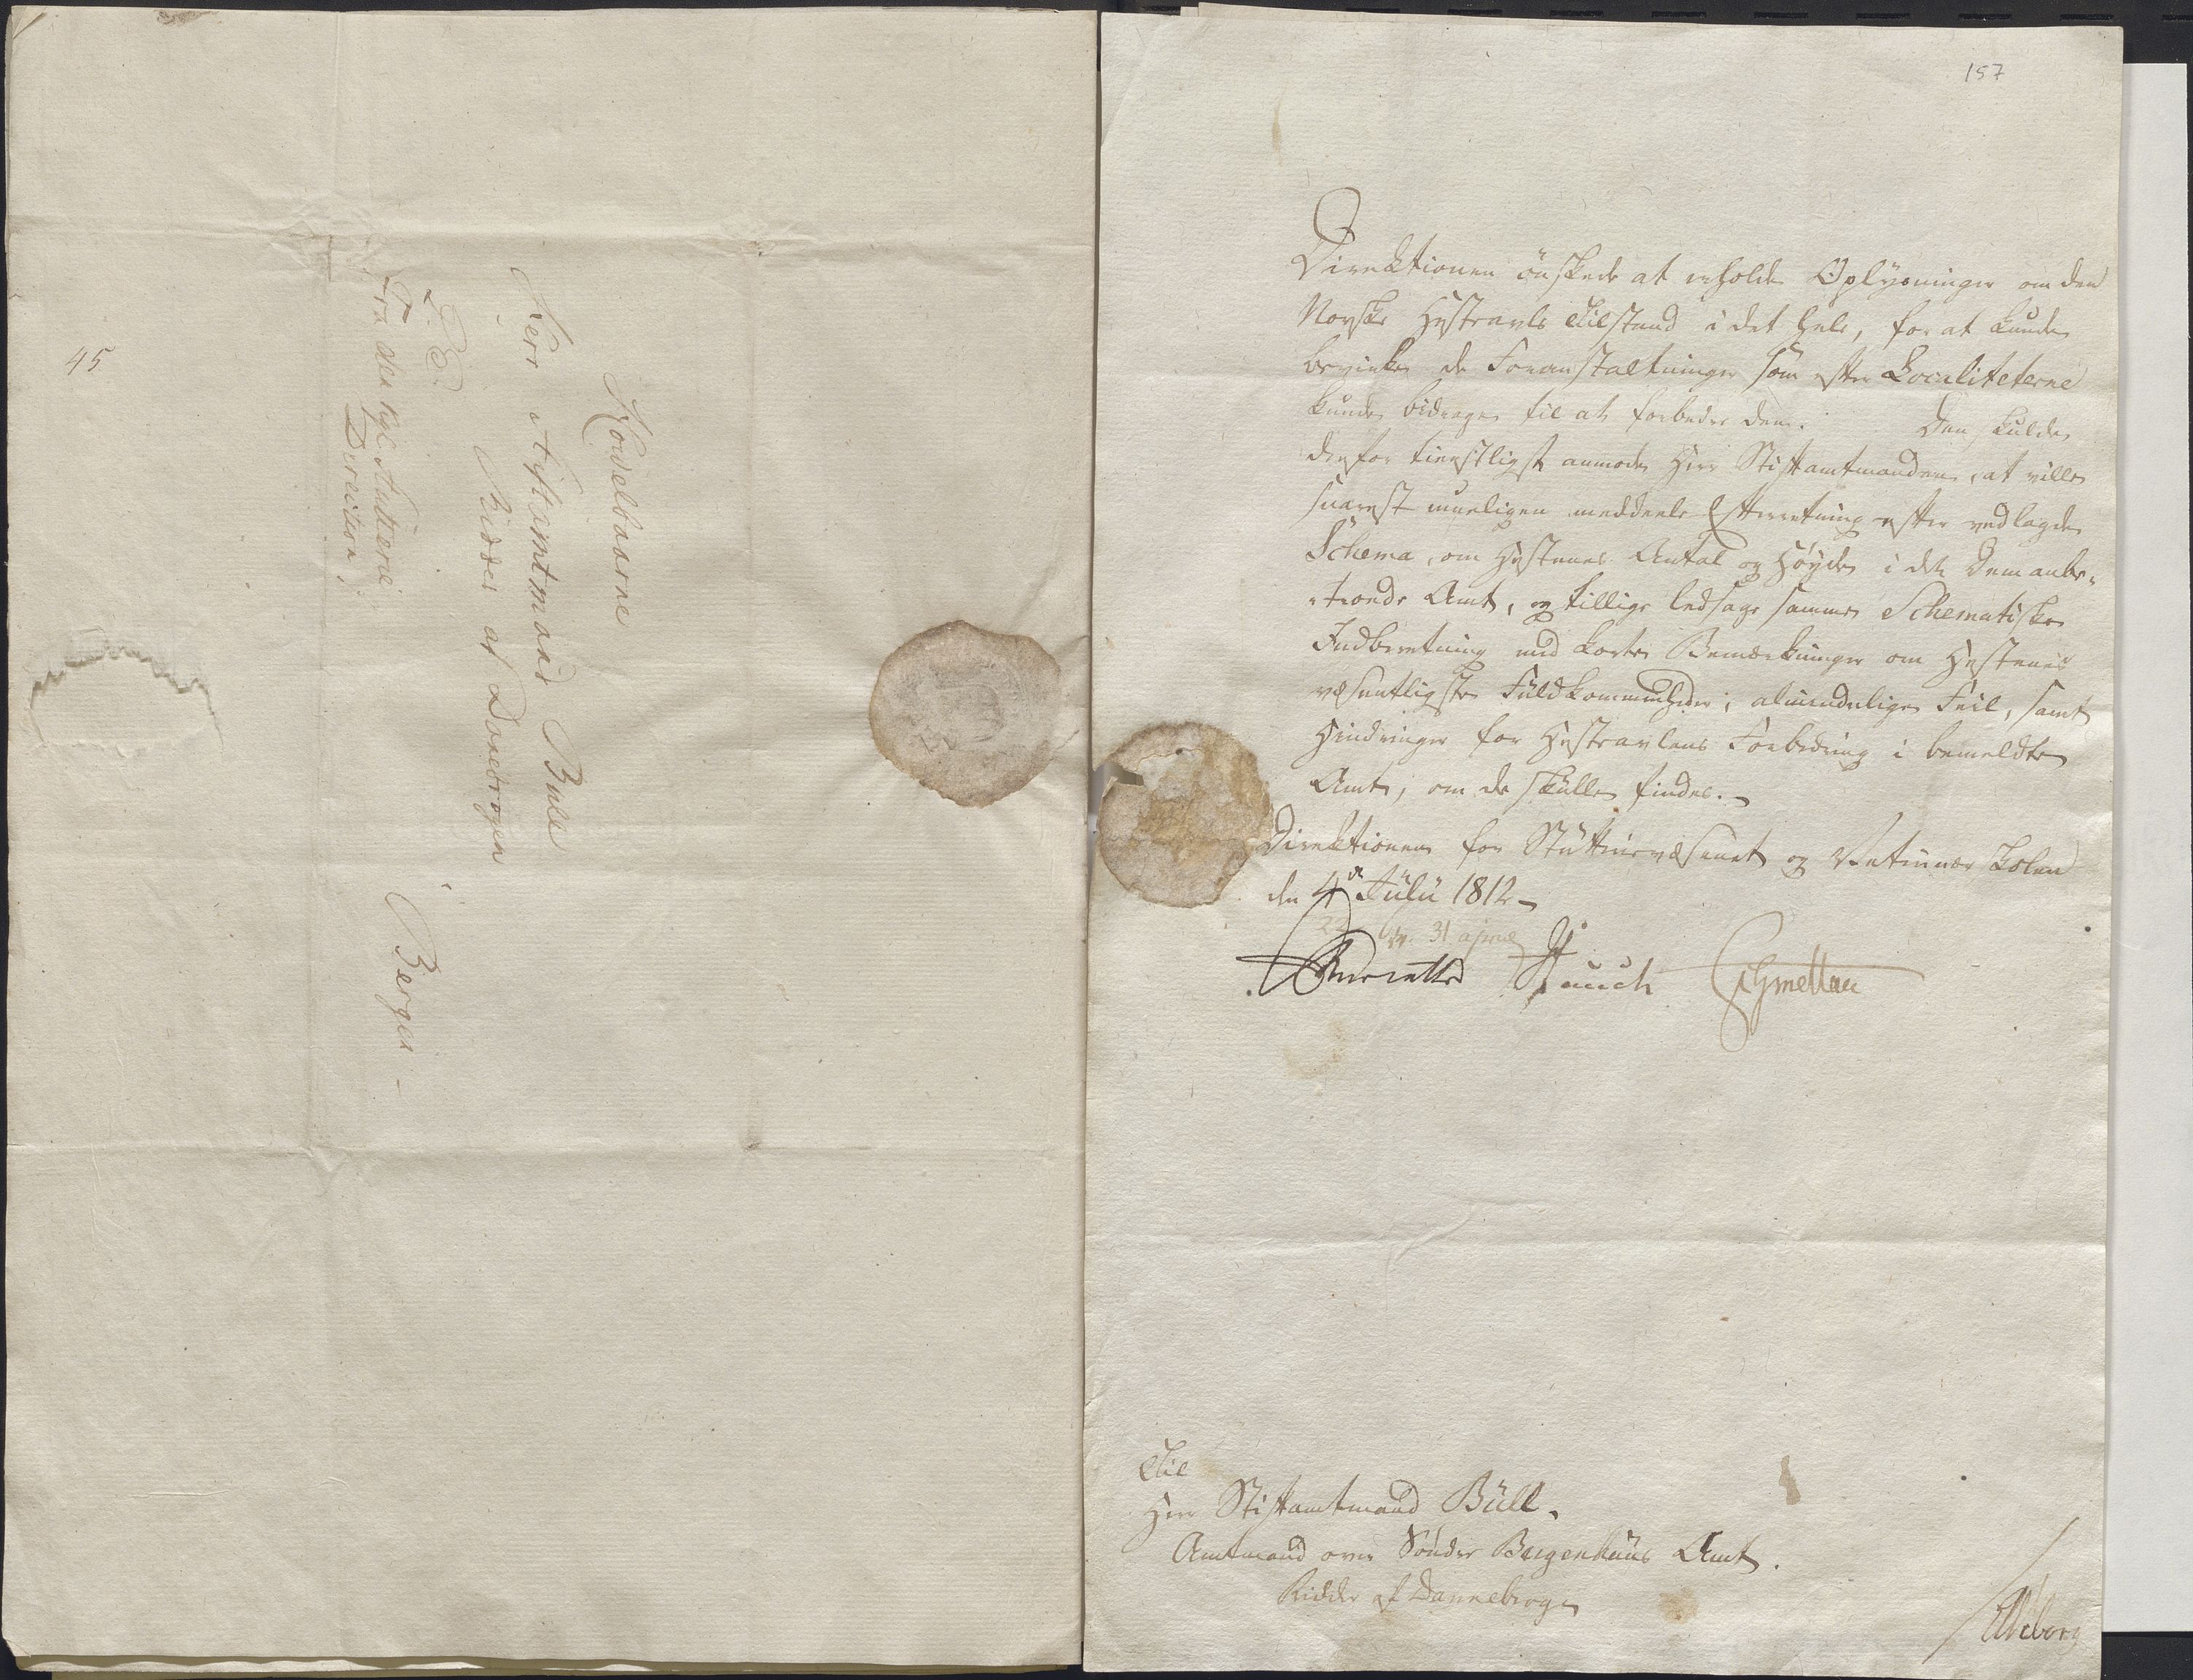 45
Höivelbaarne
Herr Stiftamtmand Bull
Ridder af Dannebrogen
Bergen
Fra den Kgl. Stutterie
Direction
157
Direktionen önskede at erholde Oplysninger om den
Norske Hesteavls Tilstand i det hele, for at kunde
bevirke de Foranstaltninger som efter Localiteterne
kunde bidrage til at forbedre den. Den skulde
derfor tienstligst anmode Herr Stiftamtmanden, at ville
snarest mueligen meddeele Efterretning efter vedlagde
Schema, om Hestenes Antal og Høyde i det Dem anbe-
troede Amt, og tillige ledsage samme Schematiske
Indberetning med korte Bemærkninger om Hestenes
væsentligste Fuldkommenheder, almindelige Feil, samt
Hindringer for Hesteavlens Forbedring i bemeldte
Amt, om de skulle findes.
Direktionen for Stutterievæsenet og Veterinær Skolen
den 4de Julii 1812
Hauch Schmettau
Til
Herr Stiftamtmand Bull.
Amtmand over Sönder Bergenhuus Amt.
Ridder af Dannebroge